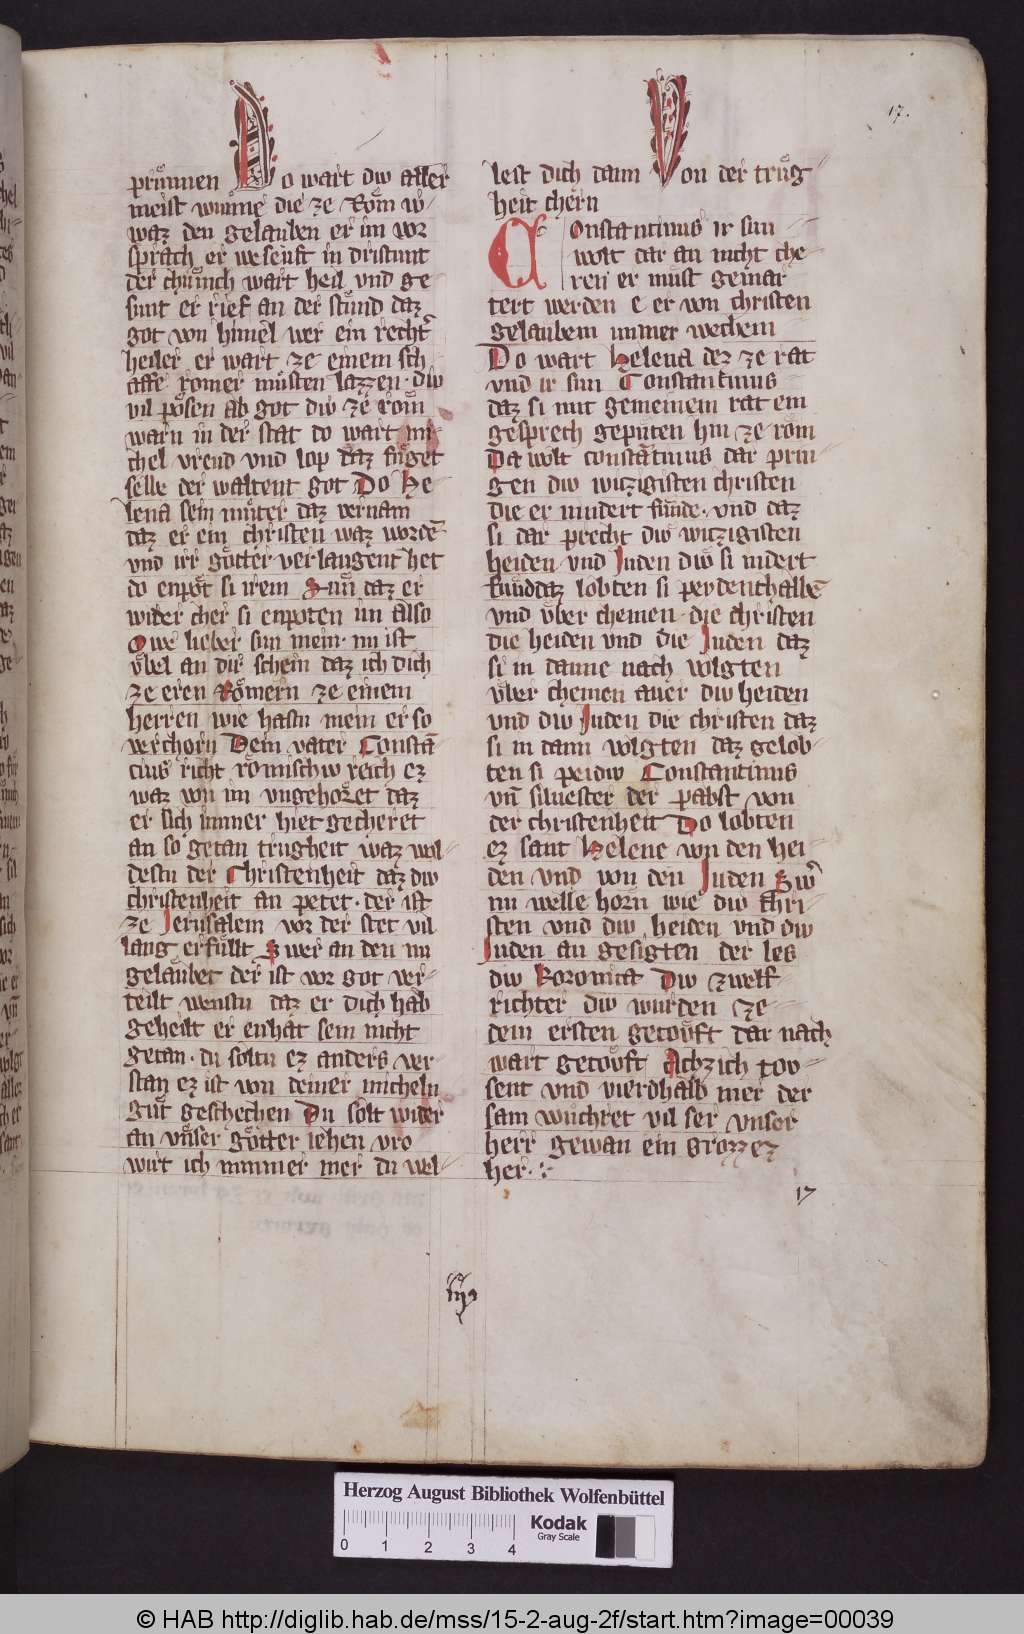 17.
prunnen Do wart diu aller
meist wunne die ze Rom w-
waz den gelauben er im vor
sprach er weseuft in dristunt
der chunich wart heil vnd ge
sunt er rief an der stund daz
got von himel wer ein recht
heiler er wart ze einem sch
affe romer musten lazzen diw
vil posen ab got diw ze rom
warn in der stat do wart mi-
chel vreud vnd lop daz fuget
selbe der waltent got Do He-
lena sein muter daz vernam
daz er ein christen waz worde
vnd irr gotter verlaugent het
do enpot si irem Sun daz er
wider cher si enpoten im also
Owe lieber sun mein nu ist
vbel an dir schein daz ich dich
ze eren Romern ze einem
herren wie hastu mein er so
verchorn Dein vater Consta
cius richt romischw reich ez
waz von im vngehoret daz
er sich immer hiet gecheret
an so getan trugheit waz wol-
destu der Christenheit daz diw
christenheit an petet der ist
ze Jerusalem vor der stet vil
lang erfullt Swer an den nu
gelaubet der ist vor got ver-
teilt wenstu daz er dich hab
geheilt er enhat sein nicht
getan du soltu ez anders ver
stan ez ist von deiner micheln
gut geschechen Du solt wider
an vnser gotter iehen vro
wirt ich nimmer mer du wel-
lest dich dann Von der trug-
heit chern
Constantinus ir sun
wolt dar an nicht che-
ren er must gemar
tert werden e er von christen
gelaubem immer wechem
Do wart Helena dez ze rat
vnd ir sun Constantinus
daz si mit gemeinem rat ein
gesprech geputen hin ze rom
Da wolt constatinus dar prin-
gen diw witzigisten christen
die er nindert funde vnd daz
si dar precht diw witzigisten
heiden vnd Juden diw si indert
funddaz lobten si peydenthalbe
vnd vber chemen die christen
die heiden vnd die Juden daz
si in danne nach volgten
vber chemen auer diw heiden
vnd diw Juden die christen daz
si in dann volgten daz gelob-
ten si peidiw Constantinus
vn siluester der pabst von
der christenheit Do lobten
ez sant Helene von den hei-
den vnd von den Juden Sw
nu welle horn wie diw chri-
sten vnd diw heiden vnd diw
Juden an gesigten der les
diw Koronica Diw zwelf
richter diw wurden ze
dem ersten getouft dar nach
wart getouft Achzich tou-
sent vnd vierdhalb mer der
sam wuchret vil ser vnser
herr gewan ein grozzez
her
17
Herzog August Bibliothek Wolfenbüttel
Kodak
Gray Scale
0 1 2 3 4
© HAB http://diglib.hab.de/mss/15-2-aug-2f/start.htm?image=00039